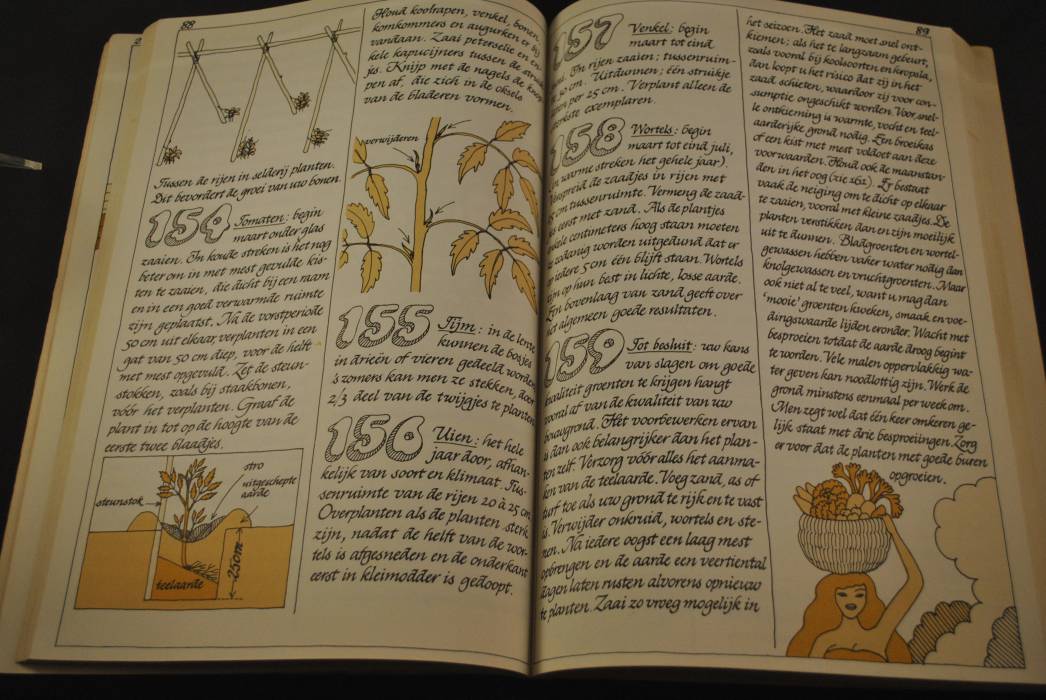 88
Tussen de rijen in selderij planten.
Dit bevordert de groei van uw bonen.
154 Tomaten: begin
maart onder glas
zaaien. In koude streken is het nog
beter om in met mest gevulde kis-
ten te zaaien, die dicht bij een raam
en in een goed verwarmde ruimte
zijn geplaatst. Na de vorstperiode
50 cm uit elkaar verplanten in een
gat van 50 cm diep, voor de helft
met mest opgevuld. Zet de steun-
stokken, zoals bij staakbonen,
vóór het verplanten. Graaf de
plant in tot op de hoogte van de
eerste twee blaadjes.
steunstok
stro
uitgeschepte
aarde
teelaarde
25cm
Houd koolrapen, venkel, bonen,
komkommers en augurken er bij
vandaan. Zaai peterselie en en-
kele kapucijners tussen de struik-
jes. Knijp met de nagels de knop-
pen af, die zich in de oksels
van de bladeren vormen.
verwijderen
155 Tijm: in de lente
kunnen de bosjes
in drieën of vieren gedeeld worden
's zomers kan men ze stekken, door
2/3 deel van de twijgjes te planten.
156 Uien: het hele
jaar door, afhan-
kelijk van soort en klimaat. Tus-
senruimte van de rijen 20 à 25 cm.
Overplanten als de planten sterk
zijn, nadat de helft van de wor-
tels is afgesneden en de onderkant
eerst in kleimodder is gedoopt.
157 Venkel: begin
maart tot eind
In rijen zaaien; tussenruim-
cm. Uitdunnen; één struikje
per 25 cm. Verplant alleen de
sterkste exemplaren.
158 Wortels: begin
maart tot eind juli,
in warme streken het gehele jaar).
Verspreid de zaadjes in rijen met
cm tussenruimte. Vermeng de zaad-
jes eerst met zand. Als de plantjes
enkele centimeters hoog staan moeten
ze zodanig worden uitgedund dat er
iedere 5 cm één blijft staan. Wortels
zijn op hun best in lichte, losse aarde.
Een bovenlaag van zand geeft over
het algemeen goede resultaten.
159 Tot besluit: uw kans
van slagen om goede
kwaliteit groenten te krijgen hangt
vooral af van de kwaliteit van uw
bouwgrond. Het voorbewerken ervan
is dan ook belangrijker dan het plan-
ten zelf. Verzorg vóór alles het aanma-
ken van de teelaarde. Voeg zand, as of
turf toe als uw grond te rijk en te vast
is. Verwijder onkruid, wortels en ste-
nen. Na iedere oogst een laag mest
opbrengen en de aarde een veertiental
dagen laten rusten alvorens opnieuw
te planten. Zaai zo vroeg mogelijk in
89
het seizoen. Het zaad moet snel ont-
kiemen; als het te langzaam gebeurt,
zoals vooral bij koolsoorten en kropsla,
dan loopt u het risico dat zij in het
zaad schieten, waardoor zij voor con-
sumptie ongeschikt worden. Voor snel-
le ontkieming is warmte, vocht en teel-
aarderijke grond nodig. Een broeikas
of een kist met mest voldoet aan deze
voorwaarden. Houd ook de maanstan-
den in het oog (zie 262). Er bestaat
vaak de neiging om te dicht op elkaar
te zaaien, vooral met kleine zaadjes. De
planten verstikken dan en zijn moeilijk
uit te dunnen. Bladgroenten en wortel-
gewassen hebben vaker water nodig dan
knolgewassen en vruchtgroenten. Maar
ook niet al te veel, want u mag dan
'mooie' groenten kweken, smaak en voe-
dingswaarde lijden eronder. Wacht met
besproeien totdat de aarde droog begint
te worden. Vele malen oppervlakkig wa-
ter geven kan noodlottig zijn. Werk de
grond minstens eenmaal per week om.
Men zegt wel dat één keer omkeren ge-
lijk staat met drie besproeiingen. Zorg
er voor dat de planten met goede buren
opgroeien.